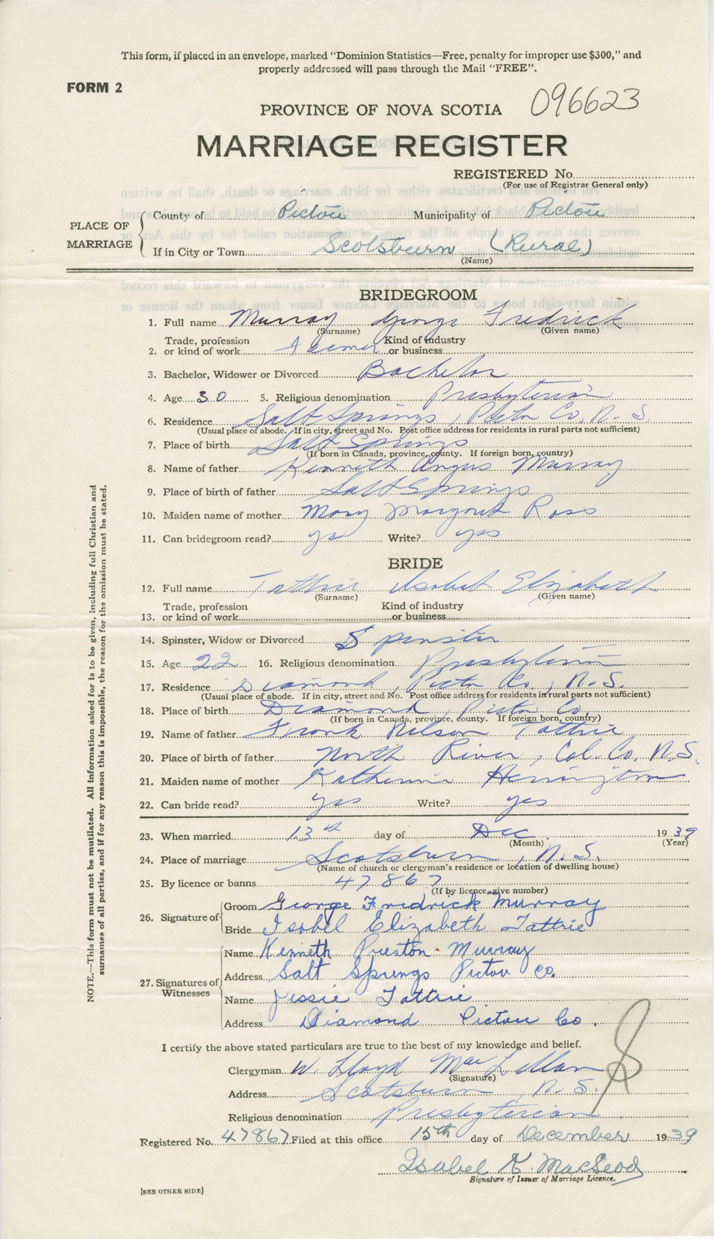 This form, if placed in an envelope, marked "Dominion Statistics—Free, penalty for improper use $300," and
properly addressed will pass through the Mail "FREE".
FORM 2
PROVINCE OF NOVA SCOTIA 096623
MARRIAGE REGISTER
REGISTERED No.
(For use of Registrar General only)
PLACE OF MARRIAGE
County of Pictou Municipality of Pictou
If in City or Town Scotsburn (Rural)
(Name)
BRIDEGROOM
1. Full name Murray George Fredrick
(Surname) (Given name)
Trade, profession Kind of industry
2. or kind of work Farmer or business
3. Bachelor, Widower or Divorced Bachelor
4. Age 30 5. Religious denomination Presbyterian
6. Residence Salt Springs, Pictou Co, N. S.
(Usual place of abode. If in city, street and No. Post office address for residents in rural parts not sufficient)
7. Place of birth Salt Springs
(If born in Canada, province, county. If foreign born, country)
8. Name of father Kenneth Angus Murray
9. Place of birth of father Salt Springs
10. Maiden name of mother Mary Margaret Ross
11. Can bridegroom read? yes Write? yes
BRIDE
12. Full name Tattrie Isobel Elizabeth
(Surname) (Given name)
Trade, profession Kind of industry
13. or kind of work or business
14. Spinster, Widow or Divorced Spinster
15. Age 22 16. Religious denomination Presbyterian
17. Residence Diamond, Pictou Co., N. S.
(Usual place of abode. If in city, street and No. Post office address for residents in rural parts not sufficient)
18. Place of birth Diamond, Pictou Co.
(If born in Canada, province, county. If foreign born, country)
19. Name of father Frank Nelson Tattrie
20. Place of birth of father North River, Col. Co. N. S.
21. Maiden name of mother Katherine Herrington
22. Can bride read? yes Write? yes
23. When married 13th day of Dec 1939
(Month) (Year)
24. Place of marriage Scotsburn, N. S.
(Name of church or clergyman's residence or location of dwelling house)
25. By licence or banns 47867
(If by licence, give number)
26. Signature of
Groom George Fredrick Murray
Bride Isobel Elizabeth Tattrie
27. Signatures of Witnesses
Name Kenneth Preston Murray
Address Salt Springs Pictou Co.
Name Jessie Tattrie
Address Diamond Pictou Co.
I certify the above stated particulars are true to the best of my knowledge and belief.
Clergyman W. Lloyd MacLellan
(Signature)
Address Scotsburn, N. S.
Religious denomination Presbyterian
Registered No. 47867 Filed at this office 15th day of December 1939
Isabel K. MacLeod
Signature of Issuer of Marriage Licence.
[SEE OTHER SIDE]
NOTE.—This form must not be mutilated. All information asked for is to be given, including full Christian and
surnames of all parties, and if for any reason this is impossible, the reason for the omission must be stated.